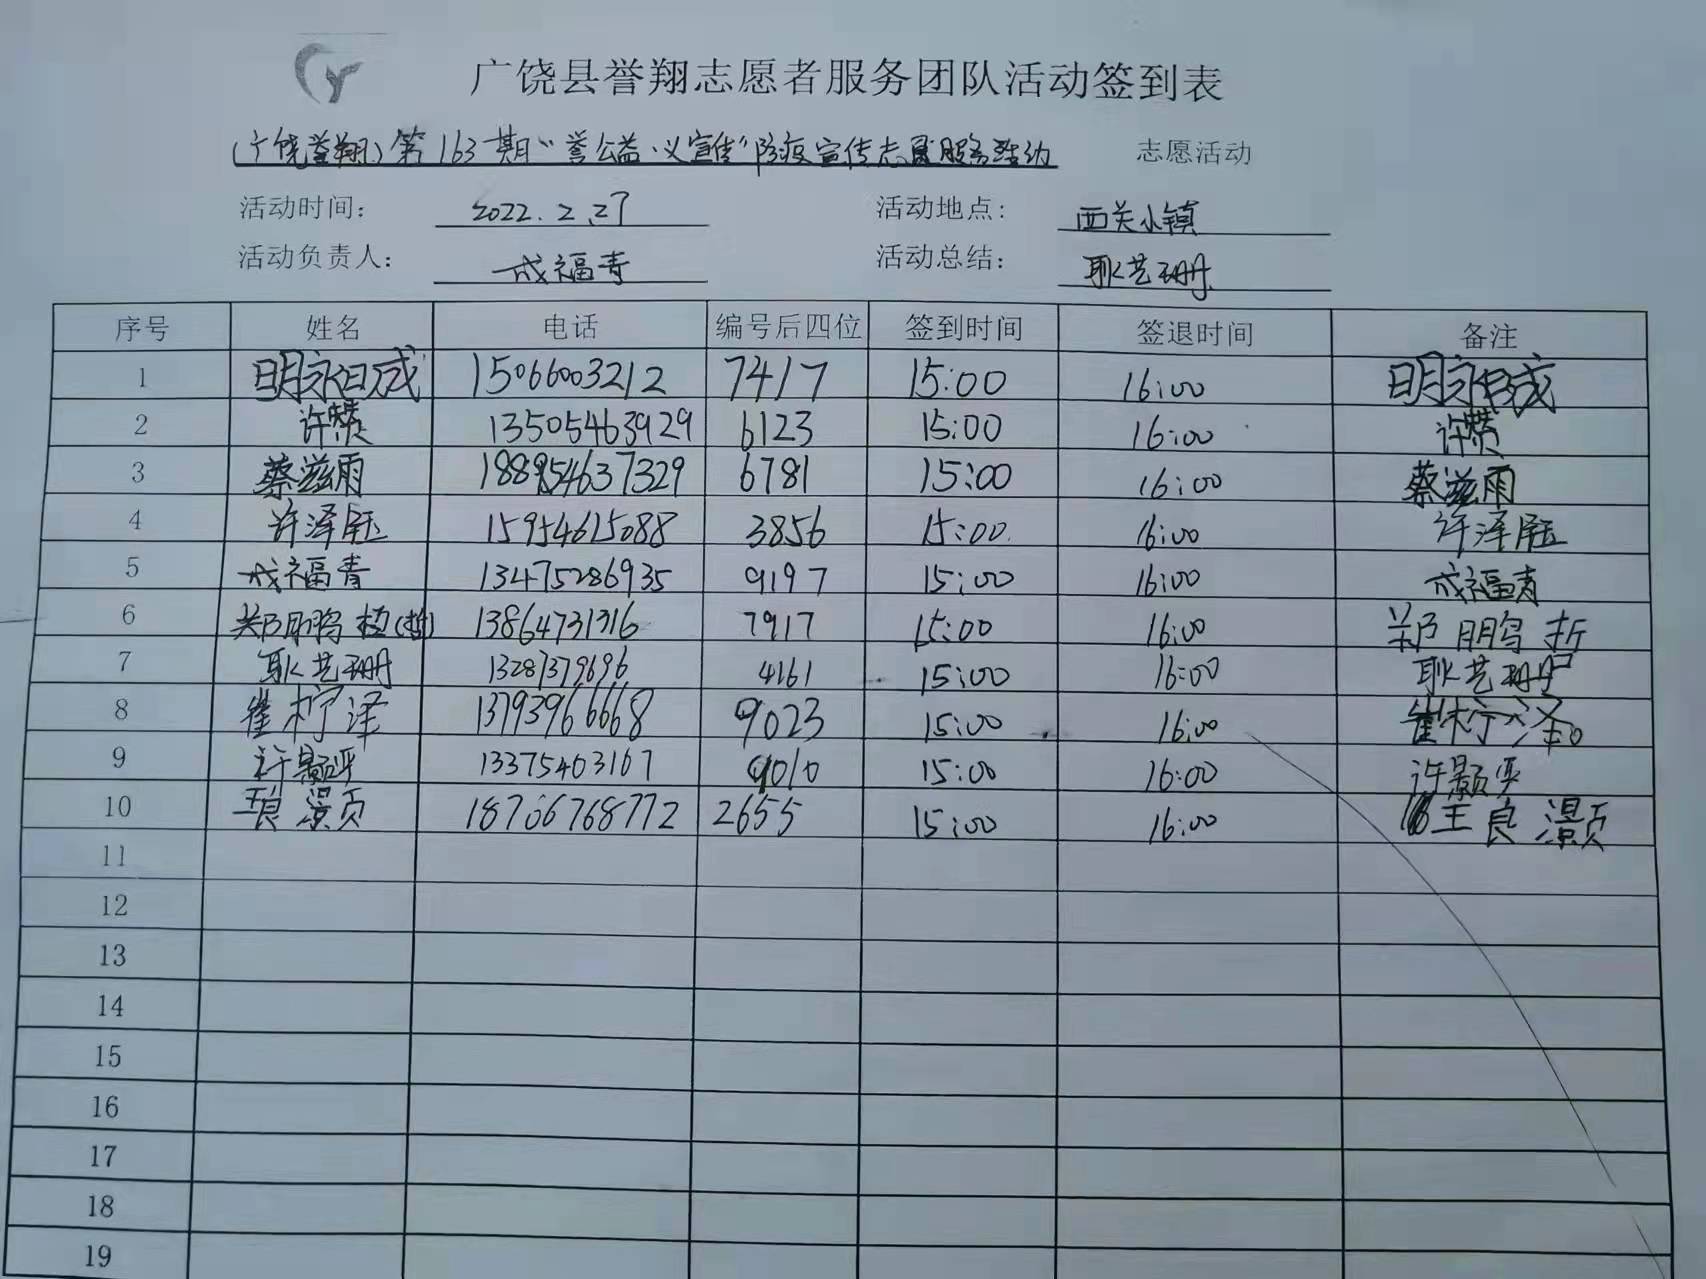 广饶县誉翔志愿者服务团队活动签到表
(广饶誉翔)第163期“誉公益·义宣传”防疫宣传志愿服务活动 志愿活动
活动时间： 2022.2.27 活动地点： 西关小镇
活动负责人： 成福青 活动总结： 耿艺珊
序号 姓名 电话 编号后四位 签到时间 签退时间 备注
1 明永成 15066003212 7417 15:00 16:00 明永成
2 许赞 13505463929 6123 15:00 16:00 许赞
3 蔡滋雨 188954637329 6781 15:00 16:00 蔡滋雨
4 许泽钰 15954615088 3856 15:00 16:00 许泽钰
5 成福青 13475286935 9197 15:00 16:00 成福青
6 郑鹏 13864731316 7917 15:00 16:00 郑鹏
7 耿艺珊 13287379696 4161 15:00 16:00 耿艺珊
8 崔柠泽 13793966668 9023 15:00 16:00 崔柠泽
9 许颢 13375463167 9010 15:00 16:00 许颢
10 王良灏 18766768772 2655 15:00 16:00 王良灏
11
12
13
14
15
16
17
18
19